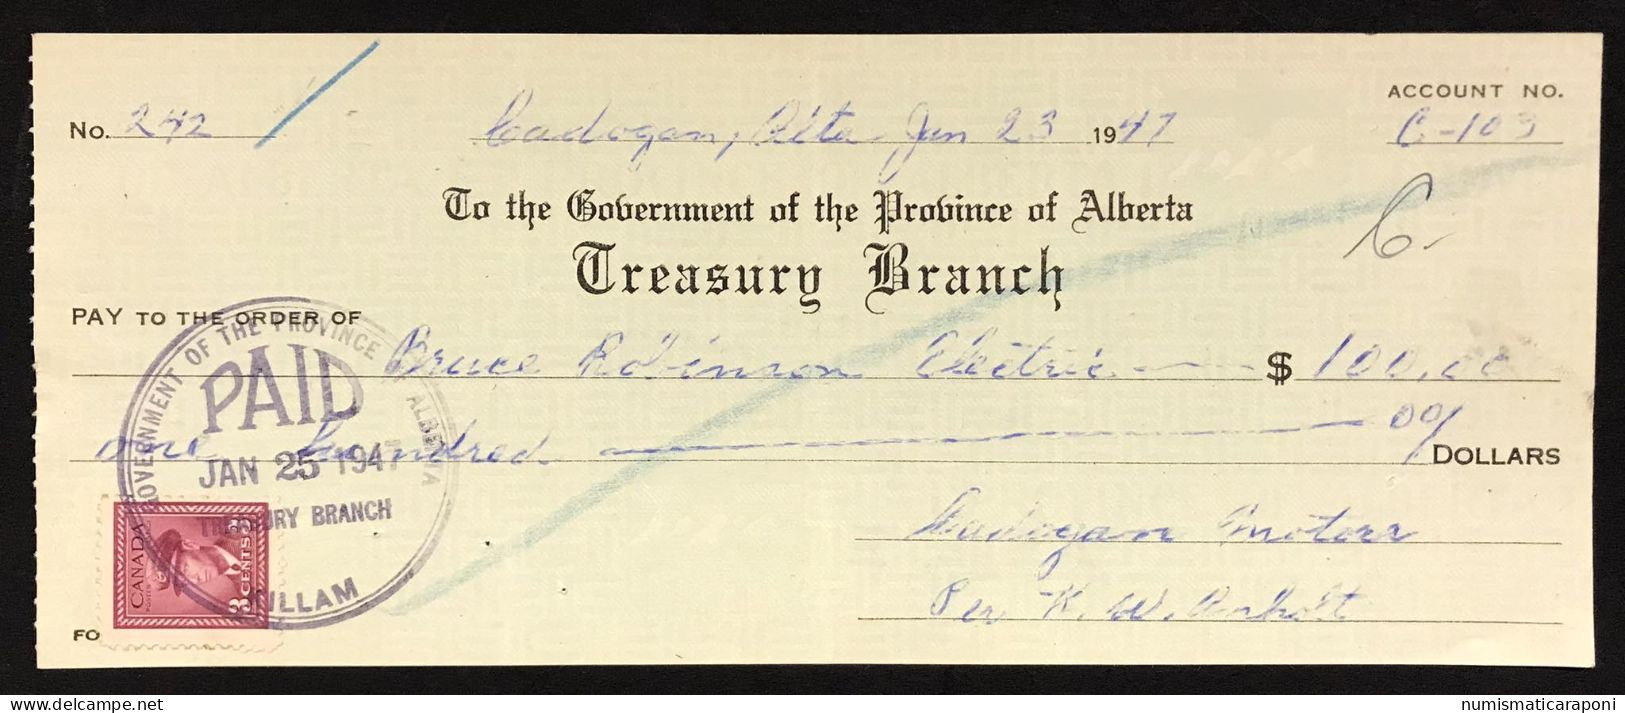 ACCOUNT NO.
No. 242 Cadogan, Alta Jan 23 1947 C-103
To the Government of the Province of Alberta
Treasury Branch
C-
PAY TO THE ORDER OF Bruce Robinson Electric $ 100.00
one hundred 00/ DOLLARS
GOVERNMENT OF THE PROVINCE OF ALBERTA
PAID
JAN 25 1947
TREASURY BRANCH
KILLAM
CANADA
POSTES
3 CENTS 3
Cadogan Motors
Per K. W. Anholt
FO
numismaticaraponi